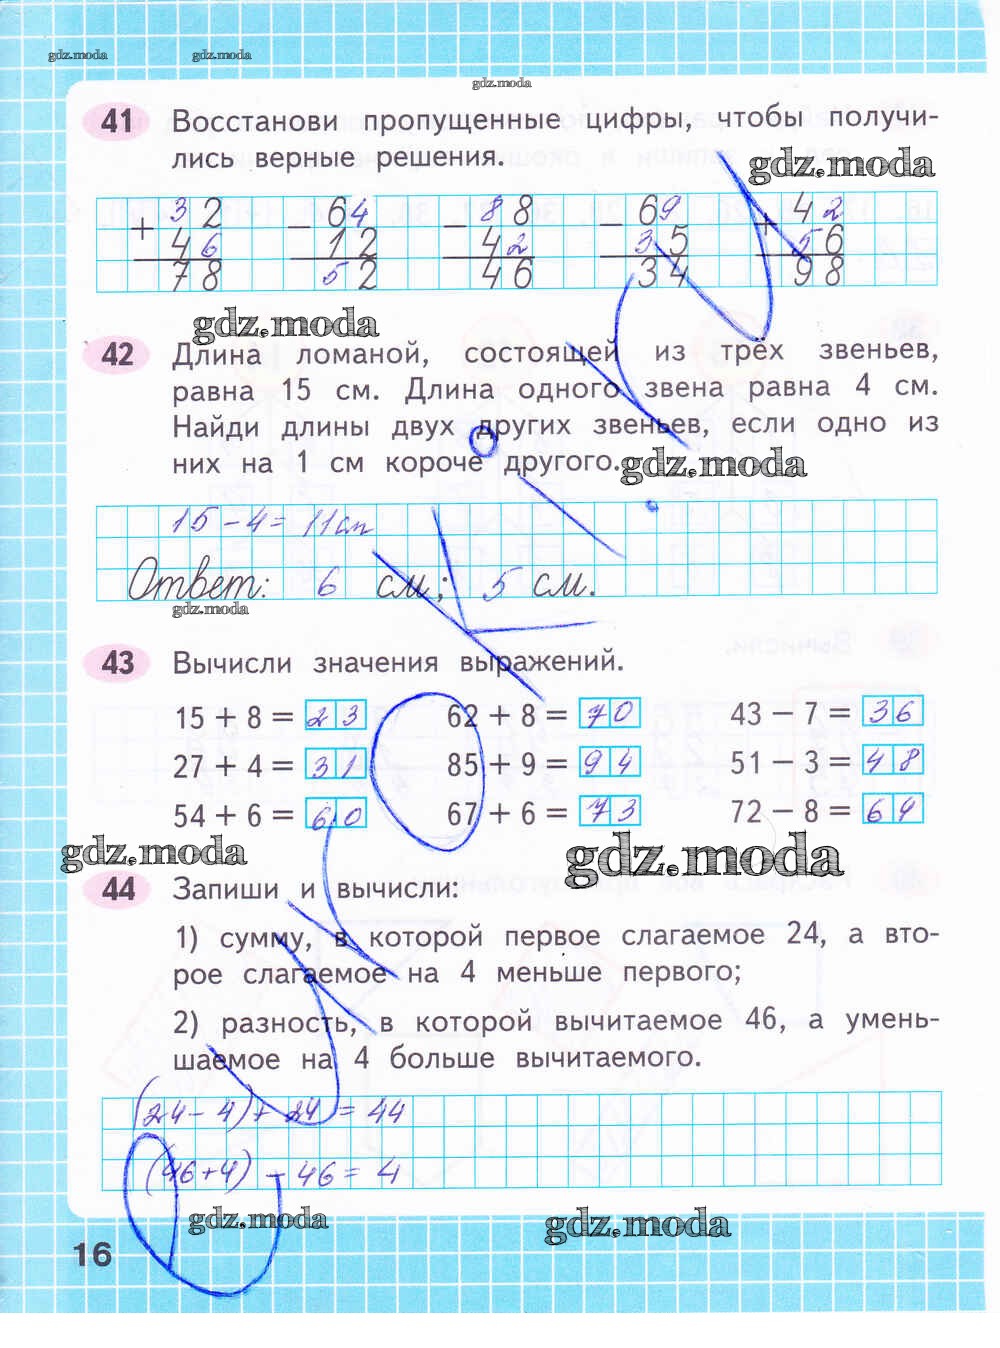 gdz.moda gdz.moda
gdz.moda
41 Восстанови пропущенные цифры, чтобы получи-
лись верные решения.
gdz.moda
+ 32 − 64 − 88 − 69 + 42
46 12 42 35 56
78 52 46 34 98
gdz.moda
42 Длина ломаной, состоящей из трёх звеньев,
равна 15 см. Длина одного звена равна 4 см.
Найди длины двух других звеньев, если одно из
них на 1 см короче другого.
gdz.moda
15 - 4 = 11 см
Ответ: 6 см; 5 см.
gdz.moda
43 Вычисли значения выражений.
15 + 8 = 23 62 + 8 = 70 43 − 7 = 36
27 + 4 = 31 85 + 9 = 94 51 − 3 = 48
54 + 6 = 60 67 + 6 = 73 72 − 8 = 64
gdz.moda gdz.moda
44 Запиши и вычисли:
1) сумму, в которой первое слагаемое 24, а вто-
рое слагаемое на 4 меньше первого;
2) разность, в которой вычитаемое 46, а умень-
шаемое на 4 больше вычитаемого.
(24 - 4) + 24 = 44
(46 + 4) - 46 = 4
gdz.moda gdz.moda
16